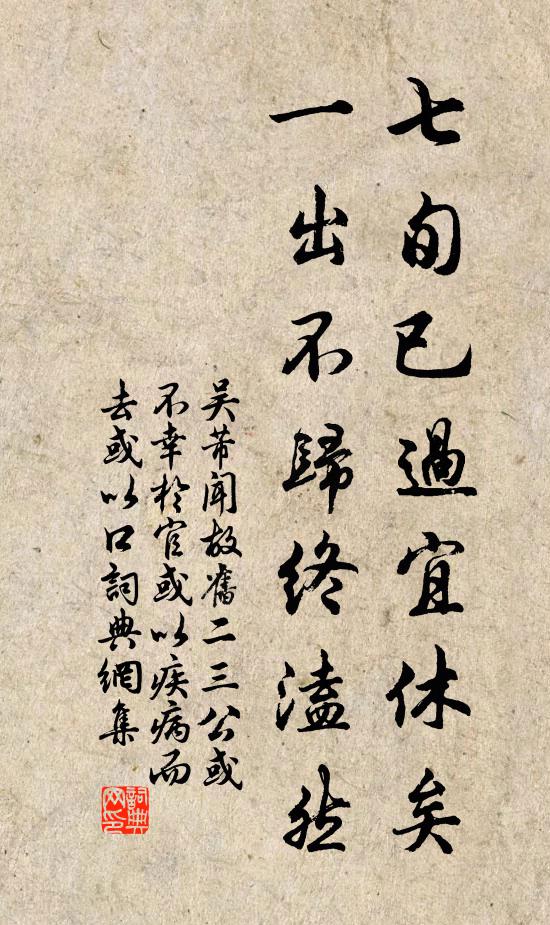 七旬已過宜休矣
一出不歸終溘然
吴芾聞故舊二三公或
不幸於官或以疾病而
去或以口詞典網集
詞典網印